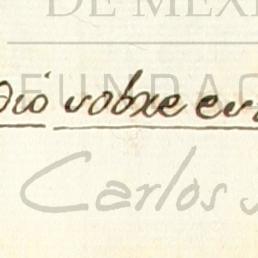 DE MÉXI
FUNDAC
dio sobre est
Carlos S